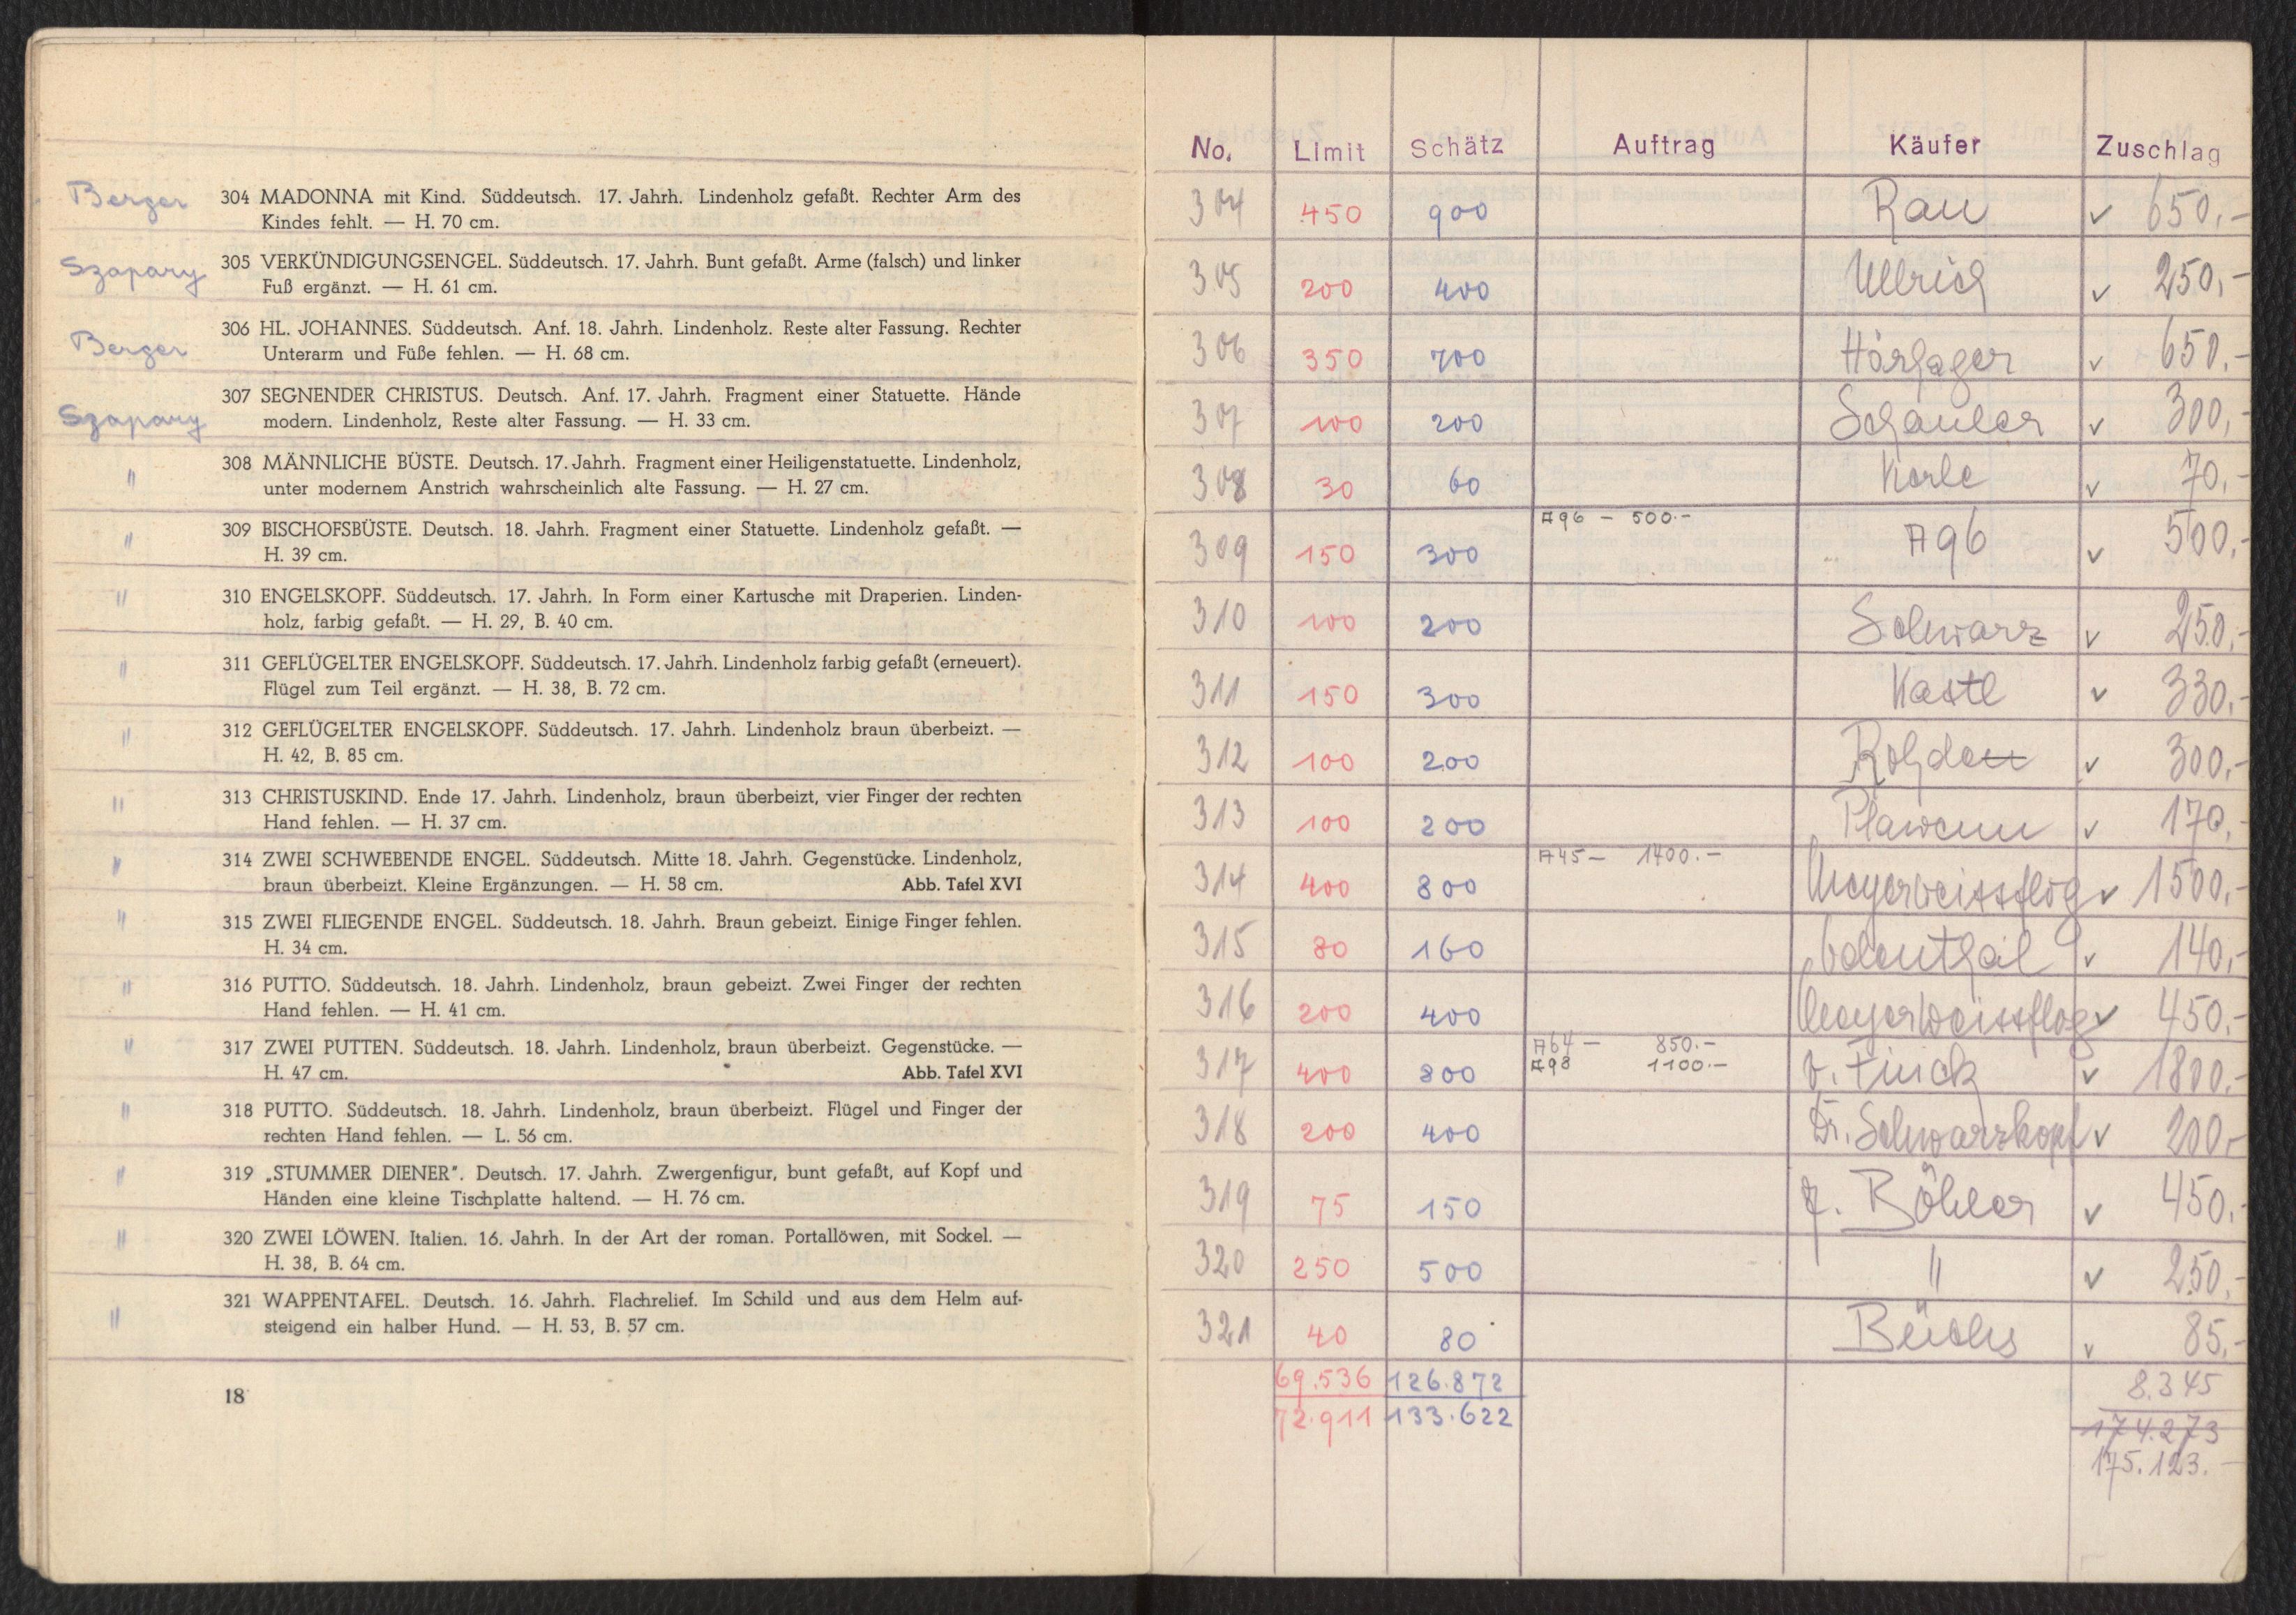 Berger
304 MADONNA mit Kind. Süddeutsch. 17. Jahrh. Lindenholz gefaßt. Rechter Arm des
Kindes fehlt. — H. 70 cm.
Szapary
305 VERKÜNDIGUNGSENGEL. Süddeutsch. 17. Jahrh. Bunt gefaßt. Arme (falsch) und linker
Fuß ergänzt. — H. 61 cm.
Berger
306 HL. JOHANNES. Süddeutsch. Anf. 18. Jahrh. Lindenholz. Reste alter Fassung. Rechter
Unterarm und Füße fehlen. — H. 68 cm.
Szapary
307 SEGNENDER CHRISTUS. Deutsch. Anf. 17. Jahrh. Fragment einer Statuette. Hände
modern. Lindenholz, Reste alter Fassung. — H. 33 cm.
" 308 MÄNNLICHE BÜSTE. Deutsch. 17. Jahrh. Fragment einer Heiligenstatuette. Lindenholz,
unter modernem Anstrich wahrscheinlich alte Fassung. — H. 27 cm.
" 309 BISCHOFSBÜSTE. Deutsch. 18. Jahrh. Fragment einer Statuette. Lindenholz gefaßt. —
H. 39 cm.
" 310 ENGELSKOPF. Süddeutsch. 17. Jahrh. In Form einer Kartusche mit Draperien. Linden-
holz, farbig gefaßt. — H. 29, B. 40 cm.
" 311 GEFLÜGELTER ENGELSKOPF. Süddeutsch. 17. Jahrh. Lindenholz farbig gefaßt (erneuert).
Flügel zum Teil ergänzt. — H. 38, B. 72 cm.
" 312 GEFLÜGELTER ENGELSKOPF. Süddeutsch. 17. Jahrh. Lindenholz braun überbeizt. —
H. 42, B. 85 cm.
" 313 CHRISTUSKIND. Ende 17. Jahrh. Lindenholz, braun überbeizt, vier Finger der rechten
Hand fehlen. — H. 37 cm.
" 314 ZWEI SCHWEBENDE ENGEL. Süddeutsch. Mitte 18. Jahrh. Gegenstücke. Lindenholz,
braun überbeizt. Kleine Ergänzungen. — H. 58 cm. Abb. Tafel XVI
" 315 ZWEI FLIEGENDE ENGEL. Süddeutsch. 18. Jahrh. Braun gebeizt. Einige Finger fehlen.
H. 34 cm.
" 316 PUTTO. Süddeutsch. 18. Jahrh. Lindenholz, braun gebeizt. Zwei Finger der rechten
Hand fehlen. — H. 41 cm.
" 317 ZWEI PUTTEN. Süddeutsch. 18. Jahrh. Lindenholz, braun überbeizt. Gegenstücke. —
H. 47 cm. Abb. Tafel XVI
" 318 PUTTO. Süddeutsch. 18. Jahrh. Lindenholz, braun überbeizt. Flügel und Finger der
rechten Hand fehlen. — L. 56 cm.
" 319 „STUMMER DIENER". Deutsch. 17. Jahrh. Zwergenfigur, bunt gefaßt, auf Kopf und
Händen eine kleine Tischplatte haltend. — H. 76 cm.
" 320 ZWEI LÖWEN. Italien. 16. Jahrh. In der Art der roman. Portallöwen, mit Sockel. —
H. 38, B. 64 cm.
" 321 WAPPENTAFEL. Deutsch. 16. Jahrh. Flachrelief. Im Schild und aus dem Helm auf-
steigend ein halber Hund. — H. 53, B. 57 cm.
18
No. Limit Schätz Auftrag Käufer Zuschlag
304 450 900 Rau ✓ 650,-
305 200 400 Ullrich ✓ 250,-
306 350 700 ✓ 650,-
307 100 200 ✓ 300,-
308 30 60 Karle ✓ 70,-
A96 - 500.-
309 150 300 A96 ✓ 500,-
310 100 200 Schwarz ✓ 250,-
311 150 300 Kastl ✓ 330,-
312 100 200 ✓ 300,-
313 100 200 ✓ 170,-
A45 - 1400.-
314 400 800 Meyerweissflog ✓ 1500,-
315 80 160 ✓ 140,-
316 200 400 Meyerweissflog ✓ 450,-
A64 - 850.-
A98 1100.-
317 400 800 v. Finck ✓ 1800,-
318 200 400 Dr. Schwarzkopf ✓ 200,-
319 75 150 J. Böhler ✓ 450,-
320 250 500 " ✓ 250,-
321 40 80 Büchs ✓ 85,-
69.536 126.872 8.345
72.911 133.622 174.273
175.123.-